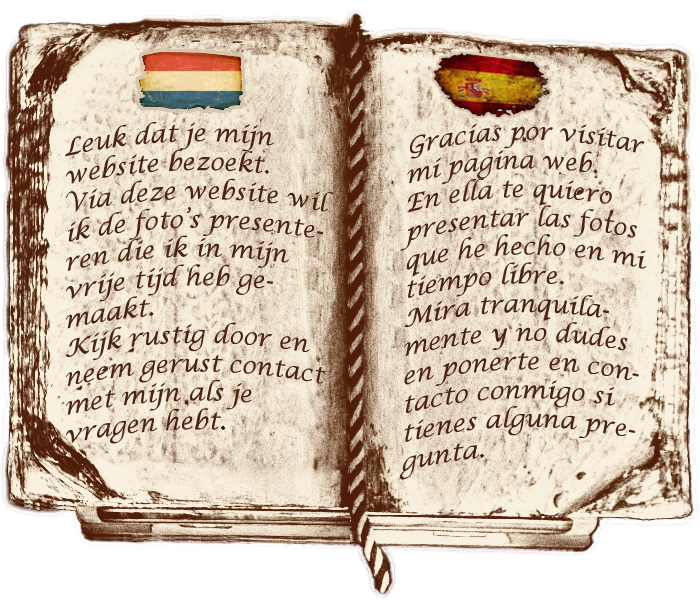 Leuk dat je mijn
website bezoekt.
Via deze website wil
ik de foto's presente-
ren die ik in mijn
vrije tijd heb ge-
maakt.
Kijk rustig door en
neem gerust contact
met mijn als je
vragen hebt.
Gracias por visitar
mi pagina web.
En ella te quiero
presentar las fotos
que he hecho en mi
tiempo libre.
Mira tranquila-
mente y no dudes
en ponerte en con-
tacto conmigo si
tienes alguna pre-
gunta.